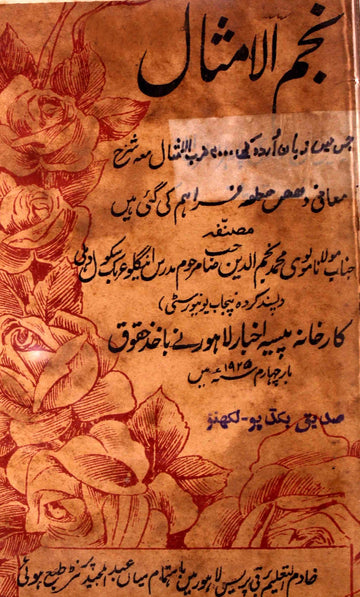 نجم الامثال
جس میں زبان اُردو کی ۲۰۰۰ ضرب الامثال معہ شرح
معانی و فراہم کی گئی ہیں
مصنّفہ
جناب مولانا مولوی محمد نجم الدین صاحب مرحوم مدرس اینگلو عربک سکول دہلی
(پسند کردہ پنجاب یونیورسٹی)
کارخانہ پیسہ اخبار لاہور نے باخذ حقوق
بار چہارم ۱۹۲۵ء میں
صدیق بکڈپو - لکھنؤ
خادم التعلیم برقی پریس لاہور میں باہتمام میاں عبدالمجید پرنٹر طبع ہوئی